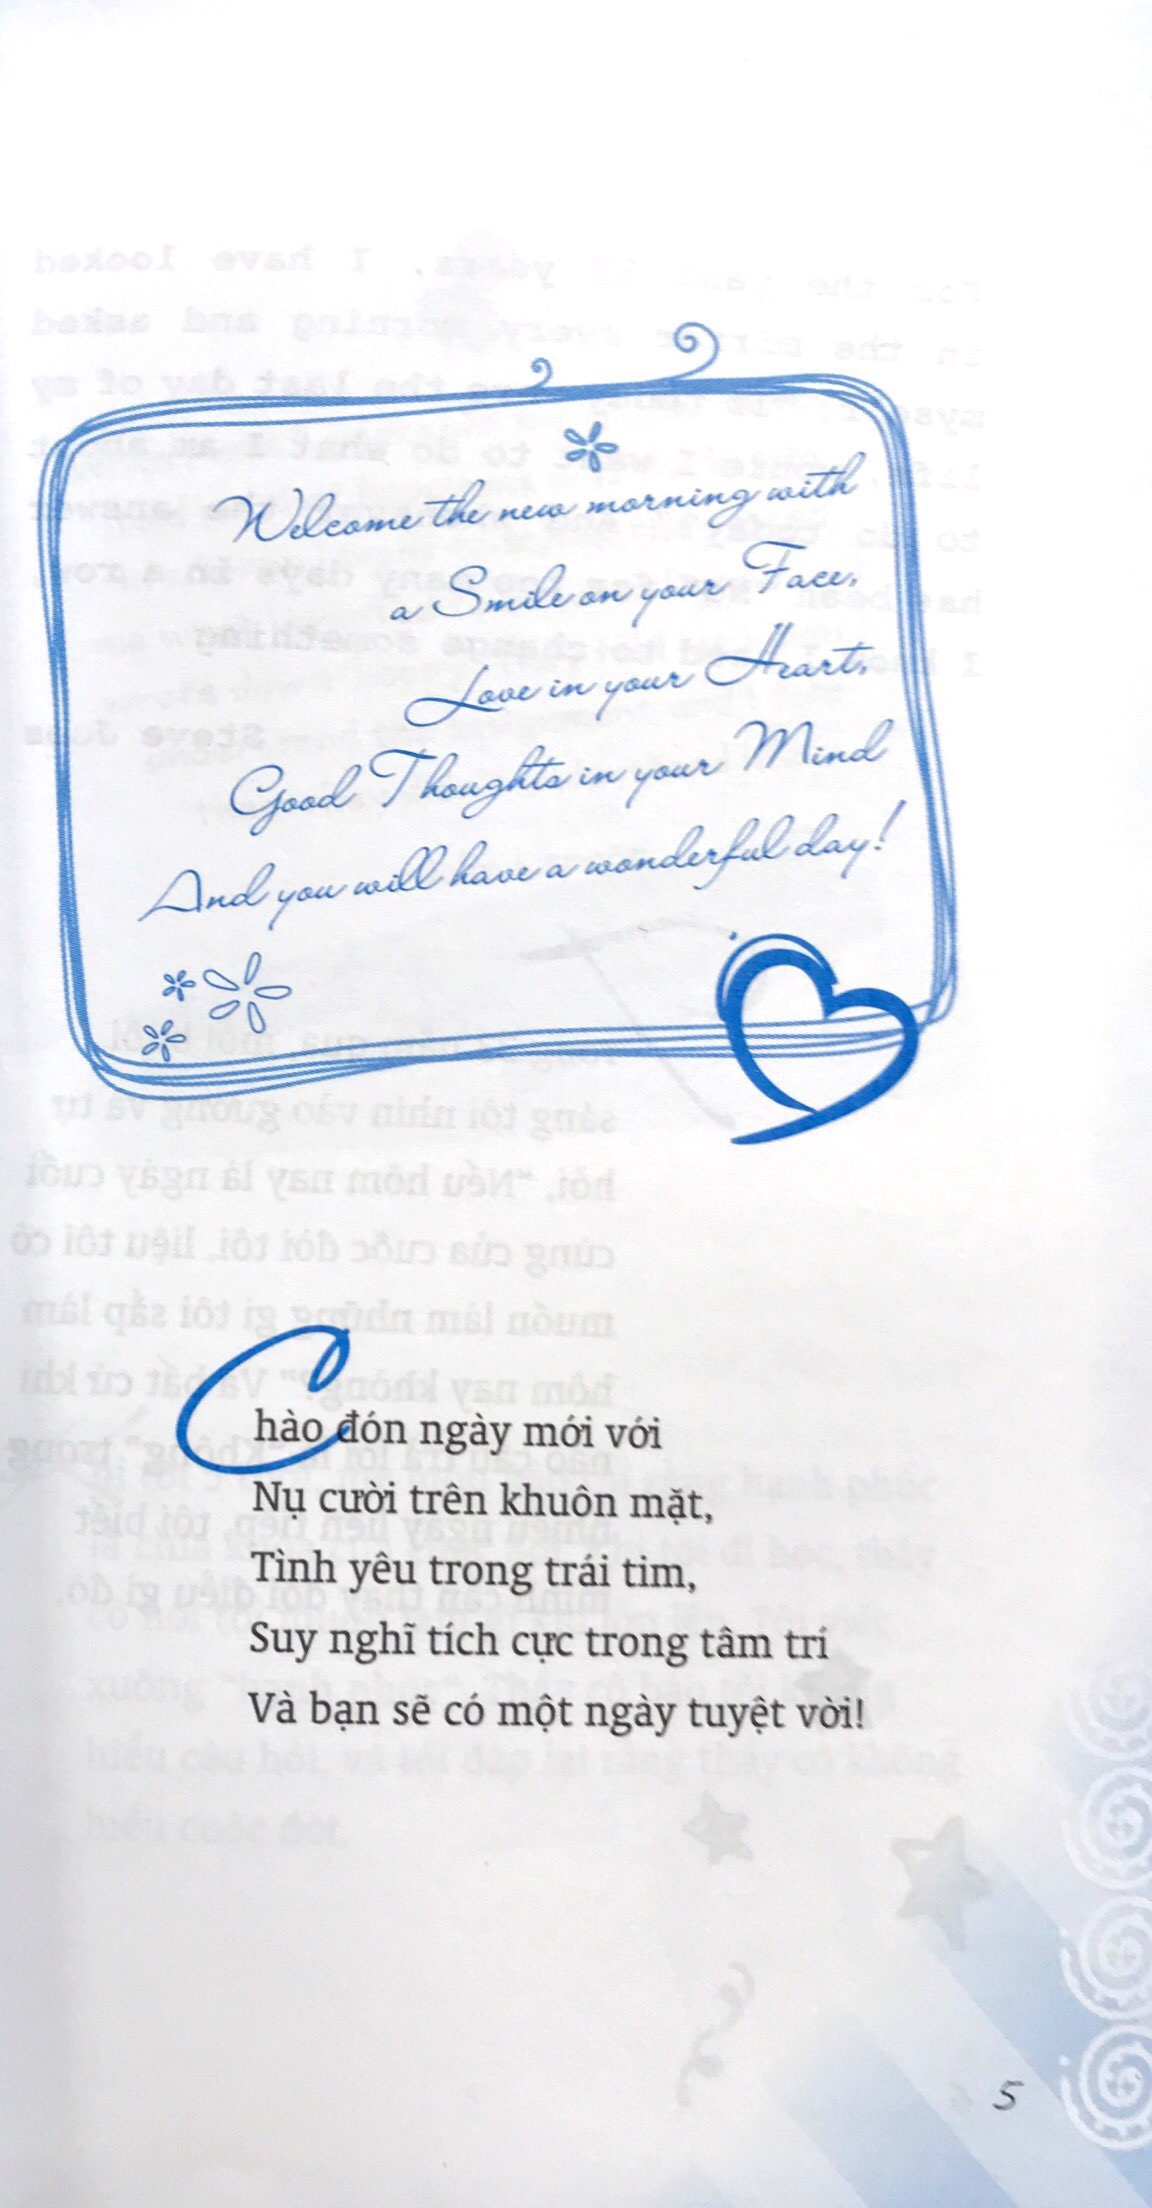 Welcome the new morning with
a Smile on your Face,
Love in your Heart,
Good Thoughts in your Mind
And you will have a wonderful day!
Chào đón ngày mới với
Nụ cười trên khuôn mặt,
Tình yêu trong trái tim,
Suy nghĩ tích cực trong tâm trí
Và bạn sẽ có một ngày tuyệt vời!
5